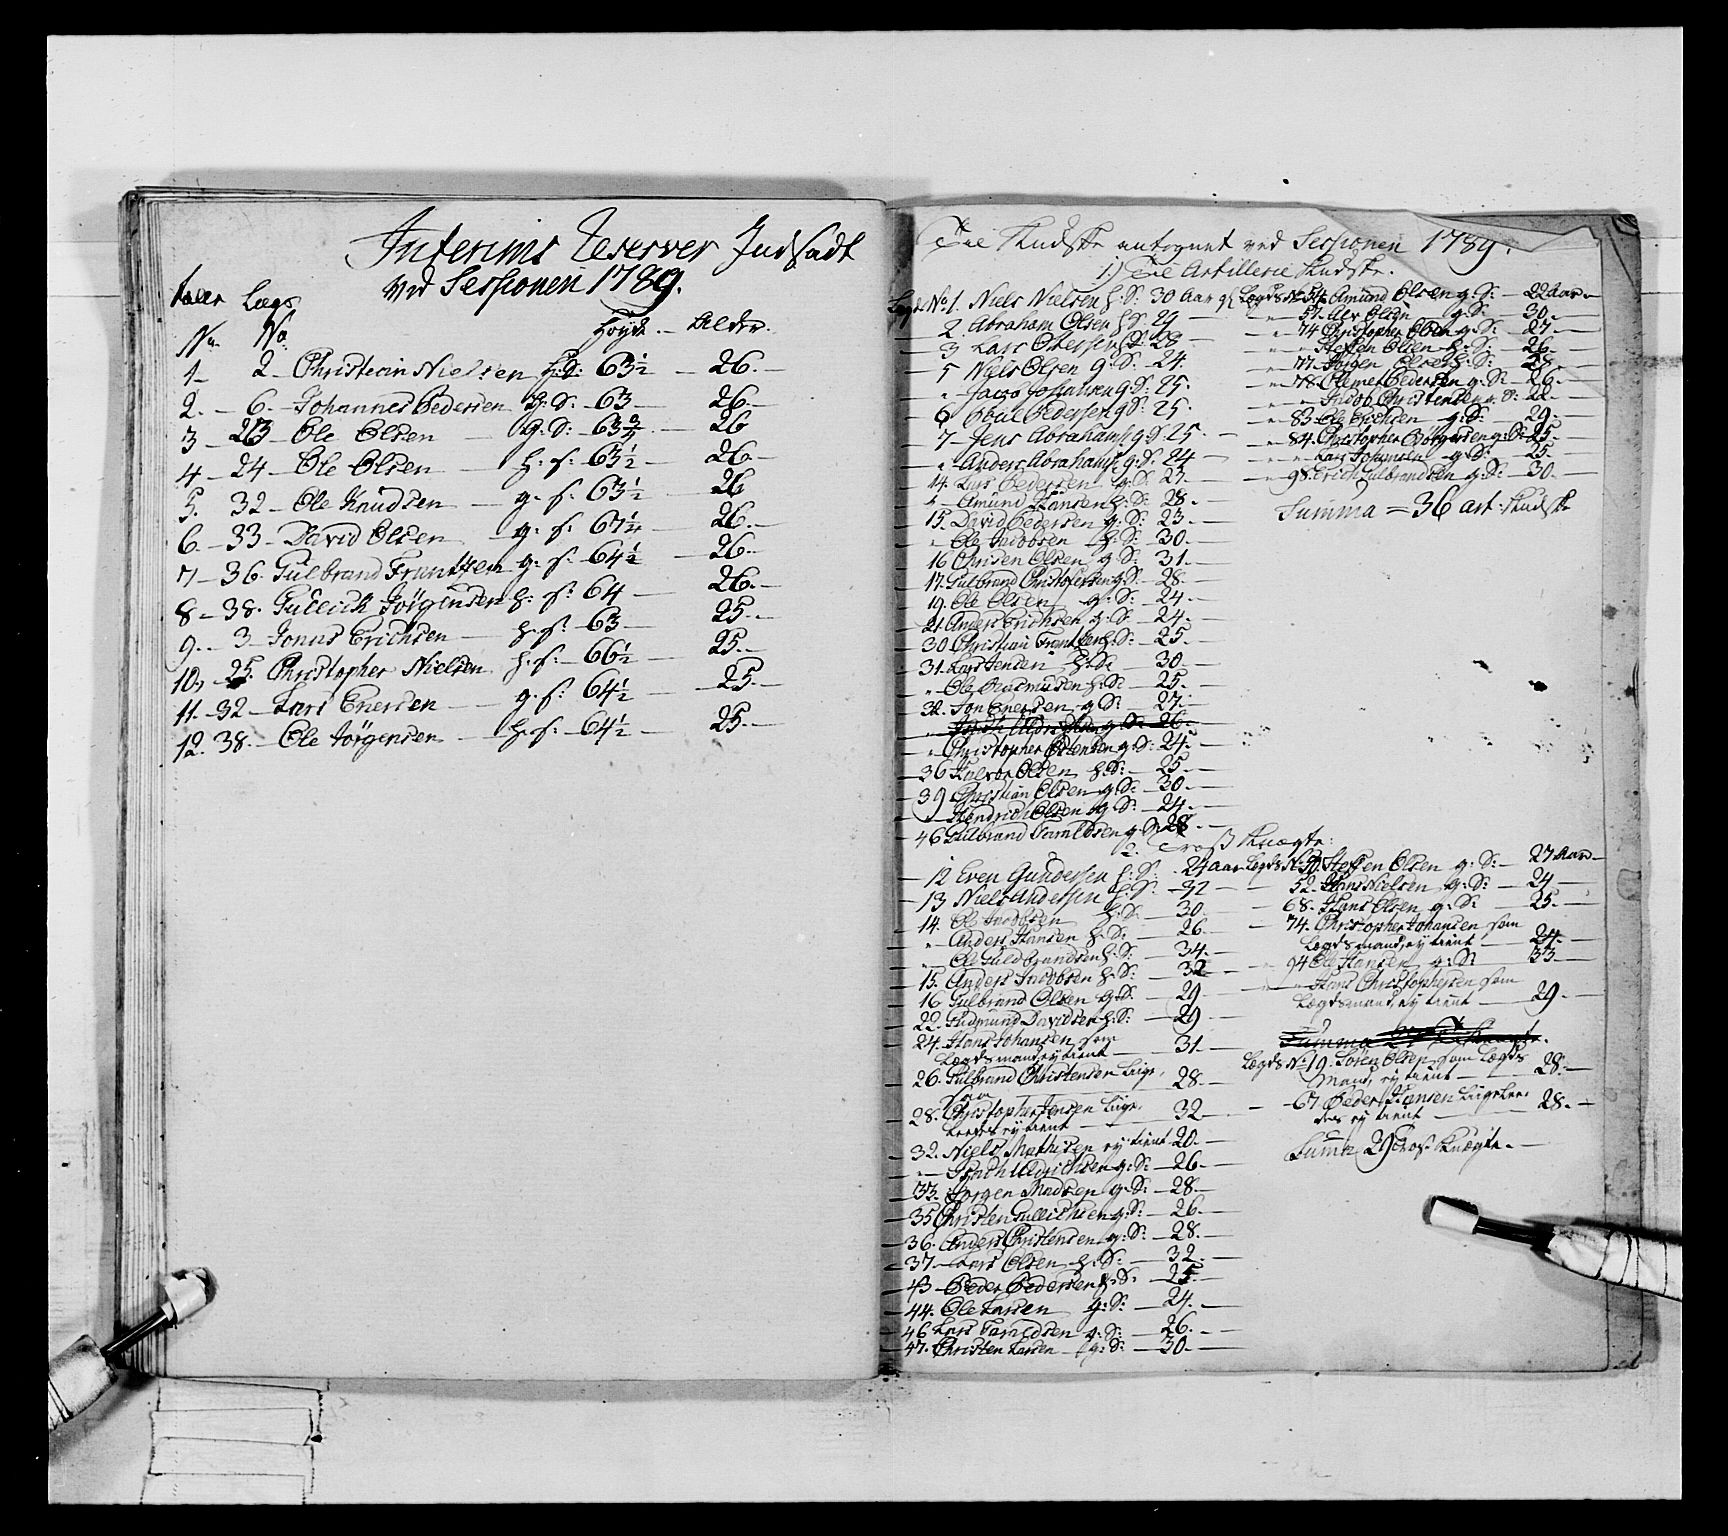 Interims Reserver Indsadt
ved Sessionen 1789.
Lægs
No No Høyde. Alder.
1 – 2 – Christian Nielsen h: S: 63½ – 26. –
2. – 6. – Johannes Pedersen h: S: – 63 – 26. –
3 – 23 – Ole Olsen – g: S: 63¾ – 26
4 – 24 – Ole Olsen – h: s: 63½ – 26. –
5. 32 – Ole Knudsen – g: s: 63½ – 26
6. – 33 – David Olsen – g: s: 67½ – 26. –
7 – 36. Gulbrand Frantzen g: s: – 64½ – 26. –
8 – 38. Gullich Jörgensen h: s: 64 – 26. –
9. – 3 – Jonas Erichsen – h: s: – 63 – 25. –
10, – 25. Christopher Nielsen h: s: – 66½ – 25. –
11. – 32 – Lars Enersen – g: s: 64½ – 25. –
12. 38. – Ole Jörgensen – h: s: – 64½ – 25. –
Til Kudske antegnet ved Sessionen 1789.
1.) Til Artillerie Kudske.
Lægd No 1. Niels Nielsen h: S: 30 Aar
2 Abraham Olsen h: S: 29 –
3 Lars Olsen h: S: 28 –
5 Niels Olsen g: S: 24.
" Jacob Johansen g: S: 25.
6 Poul Pedersen g: S: 25.
7 – Jens Abrahams: g: S: 25. –
" Anders Abrahams: g: S: 24 –
14. Lars Pedersen g: S: 25. –
" – Amund Hansen h: S: 28. –
15. David Pedersen g: S: 23. –
" Ole Jacobsen h: S: 30. –
16 Christen Olsen g: S: 31. –
17. Gulbrand Christophersen g: S: – 28. –
19. Ole Olsen g: S: – 24. –
21. Anders Erichsen g: S: – 24. –
30 Christian Frantzen h: S: – 25. –
31. Lars Jensen h: S: – 30. –
" Ole Rasmusen h: S: – 25. –
32. Jon Enersen g: S: – 27. –
g: S: – 26. –
" Christopher g: S: 24. –
36 Halvor Olsen h: S: – 25. –
39 Christian Olsen g: S: – 30. –
" Hendrich Olsen g: S: – 24. –
46 Gulbrand Taraldsen g: S: 28. –
Lægds No 54. Amund Olsen g: S: – 22 Aar –
" 57. Olsen g: S: – 30. –
" 74 Christopher Olsen g: S: – 27. –
" " Steffen Olsen h: S: – 26. –
" 77. Jörgen Olsen h: S: – 28. –
" 78. Pedersen g: S: – 26. –
" " Jacob Christensen S: 22. –
" 83. Ole Erichsen g: S: – 29. –
" 84. Christopher g: S: 25. –
" " Lars Johansen g: S: – 25. –
" 98. Erich Gulbrandsen g: S: – 30. –
Summa = 36 art: Kudske
2. Tros Knægte:
12 Even Gundersen h: S: – 24 Aar
13. Niels Andersen h: S: – 32 –
14. Ole Jacobsen h: S: – 30. –
" Anders Hansen h: S: – 26. –
" Ole Guldbrandsen h: S: – 34. –
15. Anders Jacobsen h: S: – 32 –
16 Gulbrand Olsen g: S: – 29 –
22. Gudmund Davidsen h: S: – 29 –
24. Hans Johansen som
Lægdsmand, ey tient – 31. –
26. Gulbrand Christensen lige
saa – 28. –
28. Christopher Jensen lige
ledes ey tient – 32 –
32. Niels Mathisen ey tient 20. –
" – g: S: – 26. –
33. Jörgen Madsen g: S: – 28. –
35 Christen Gullichsen g: S: – 26. –
36. Anders Christensen g: S: – 28. –
37. Lars Olsen h: S: – 32. –
43 – Peder Pedersen h: S: – 25. –
44. Ole Larsen g: S: – 24. –
46 Lars Taraldsen g: S: – 26. –
47. Christen Larsen – g: S: – 30. –
Lægds No Steffen Olsen g: S: – 27 Aar –
52. Hans Nielsen g: S: – 24 –
68. Hans Olsen g: S: – 25. –
74. Christopher Johansen som
Lægdsmand, ey tient – 24. –
94 Ole Hansen g: S: – 33 –
" Hans Christophersen som
Lægdsmand, ey tient – 29. –
Summa 27
Lægds No 19. Sören Olsen som Lægds
Mand, ey tient – 28. –
67 Peder Hansen ligeLee
des ey tient – 28. –
Summa 29 Tros Knægte. –